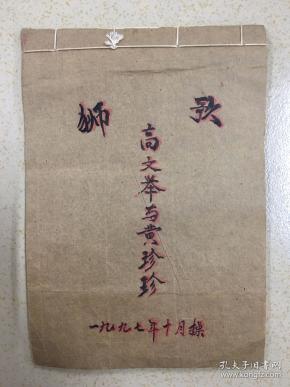 狮歌
高文举与黄珍珍
一九九七年十月撰
孔夫子旧书网